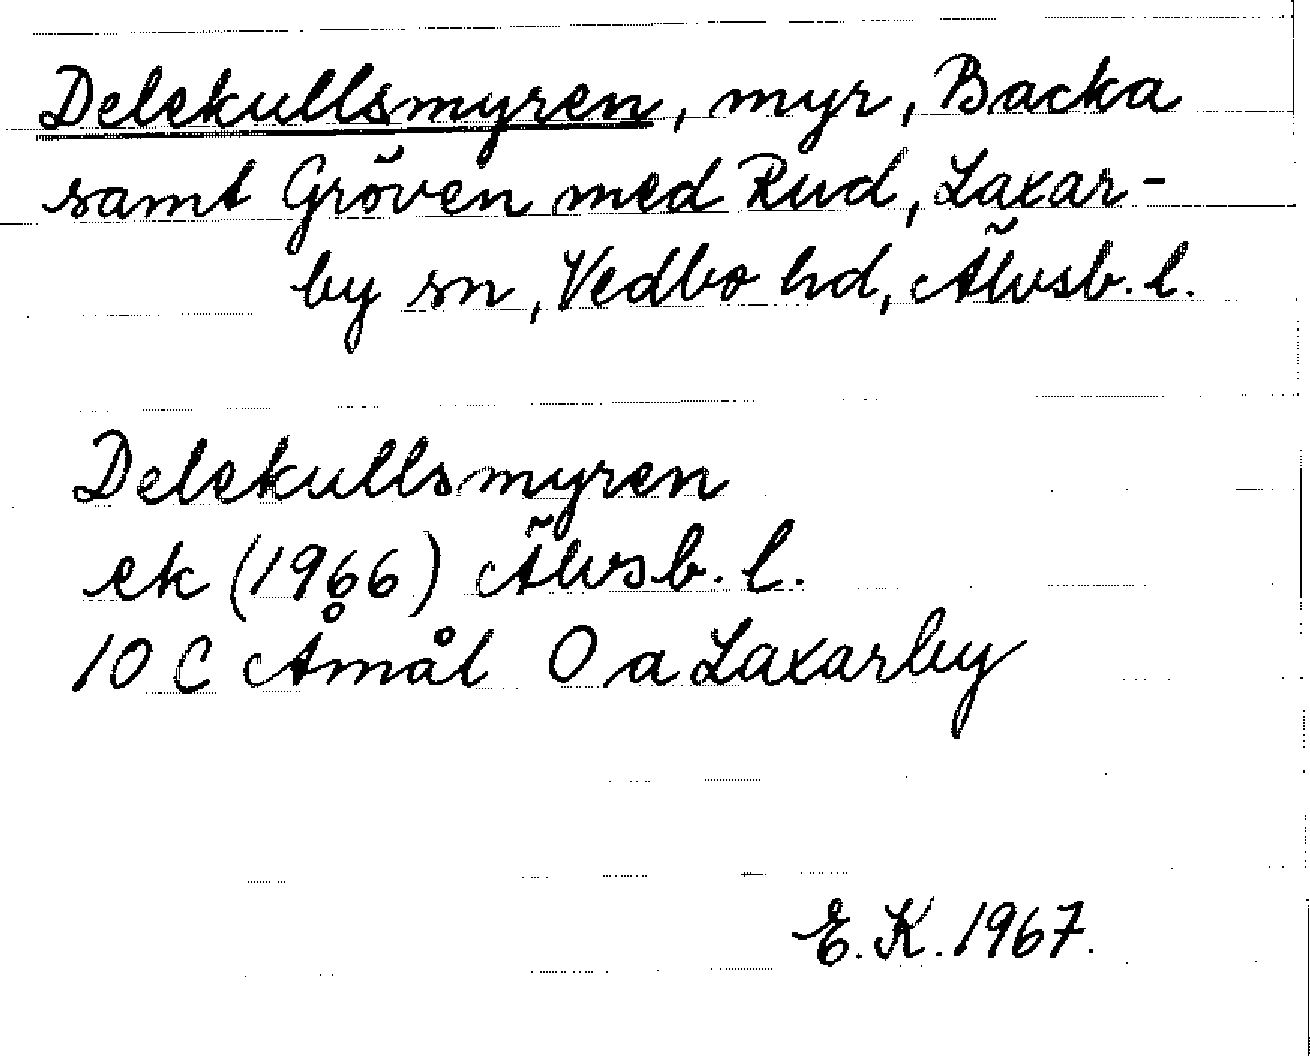 Delekullsmyren, myr, Backa
samt Gröven med Rud, Laxar-
by sn, Vedbo hd, Älvsb. l.
Delekullsmyren
ek (1966) Älvsb. l.
10 C Åmål O a Laxarby
E. K. 1967.